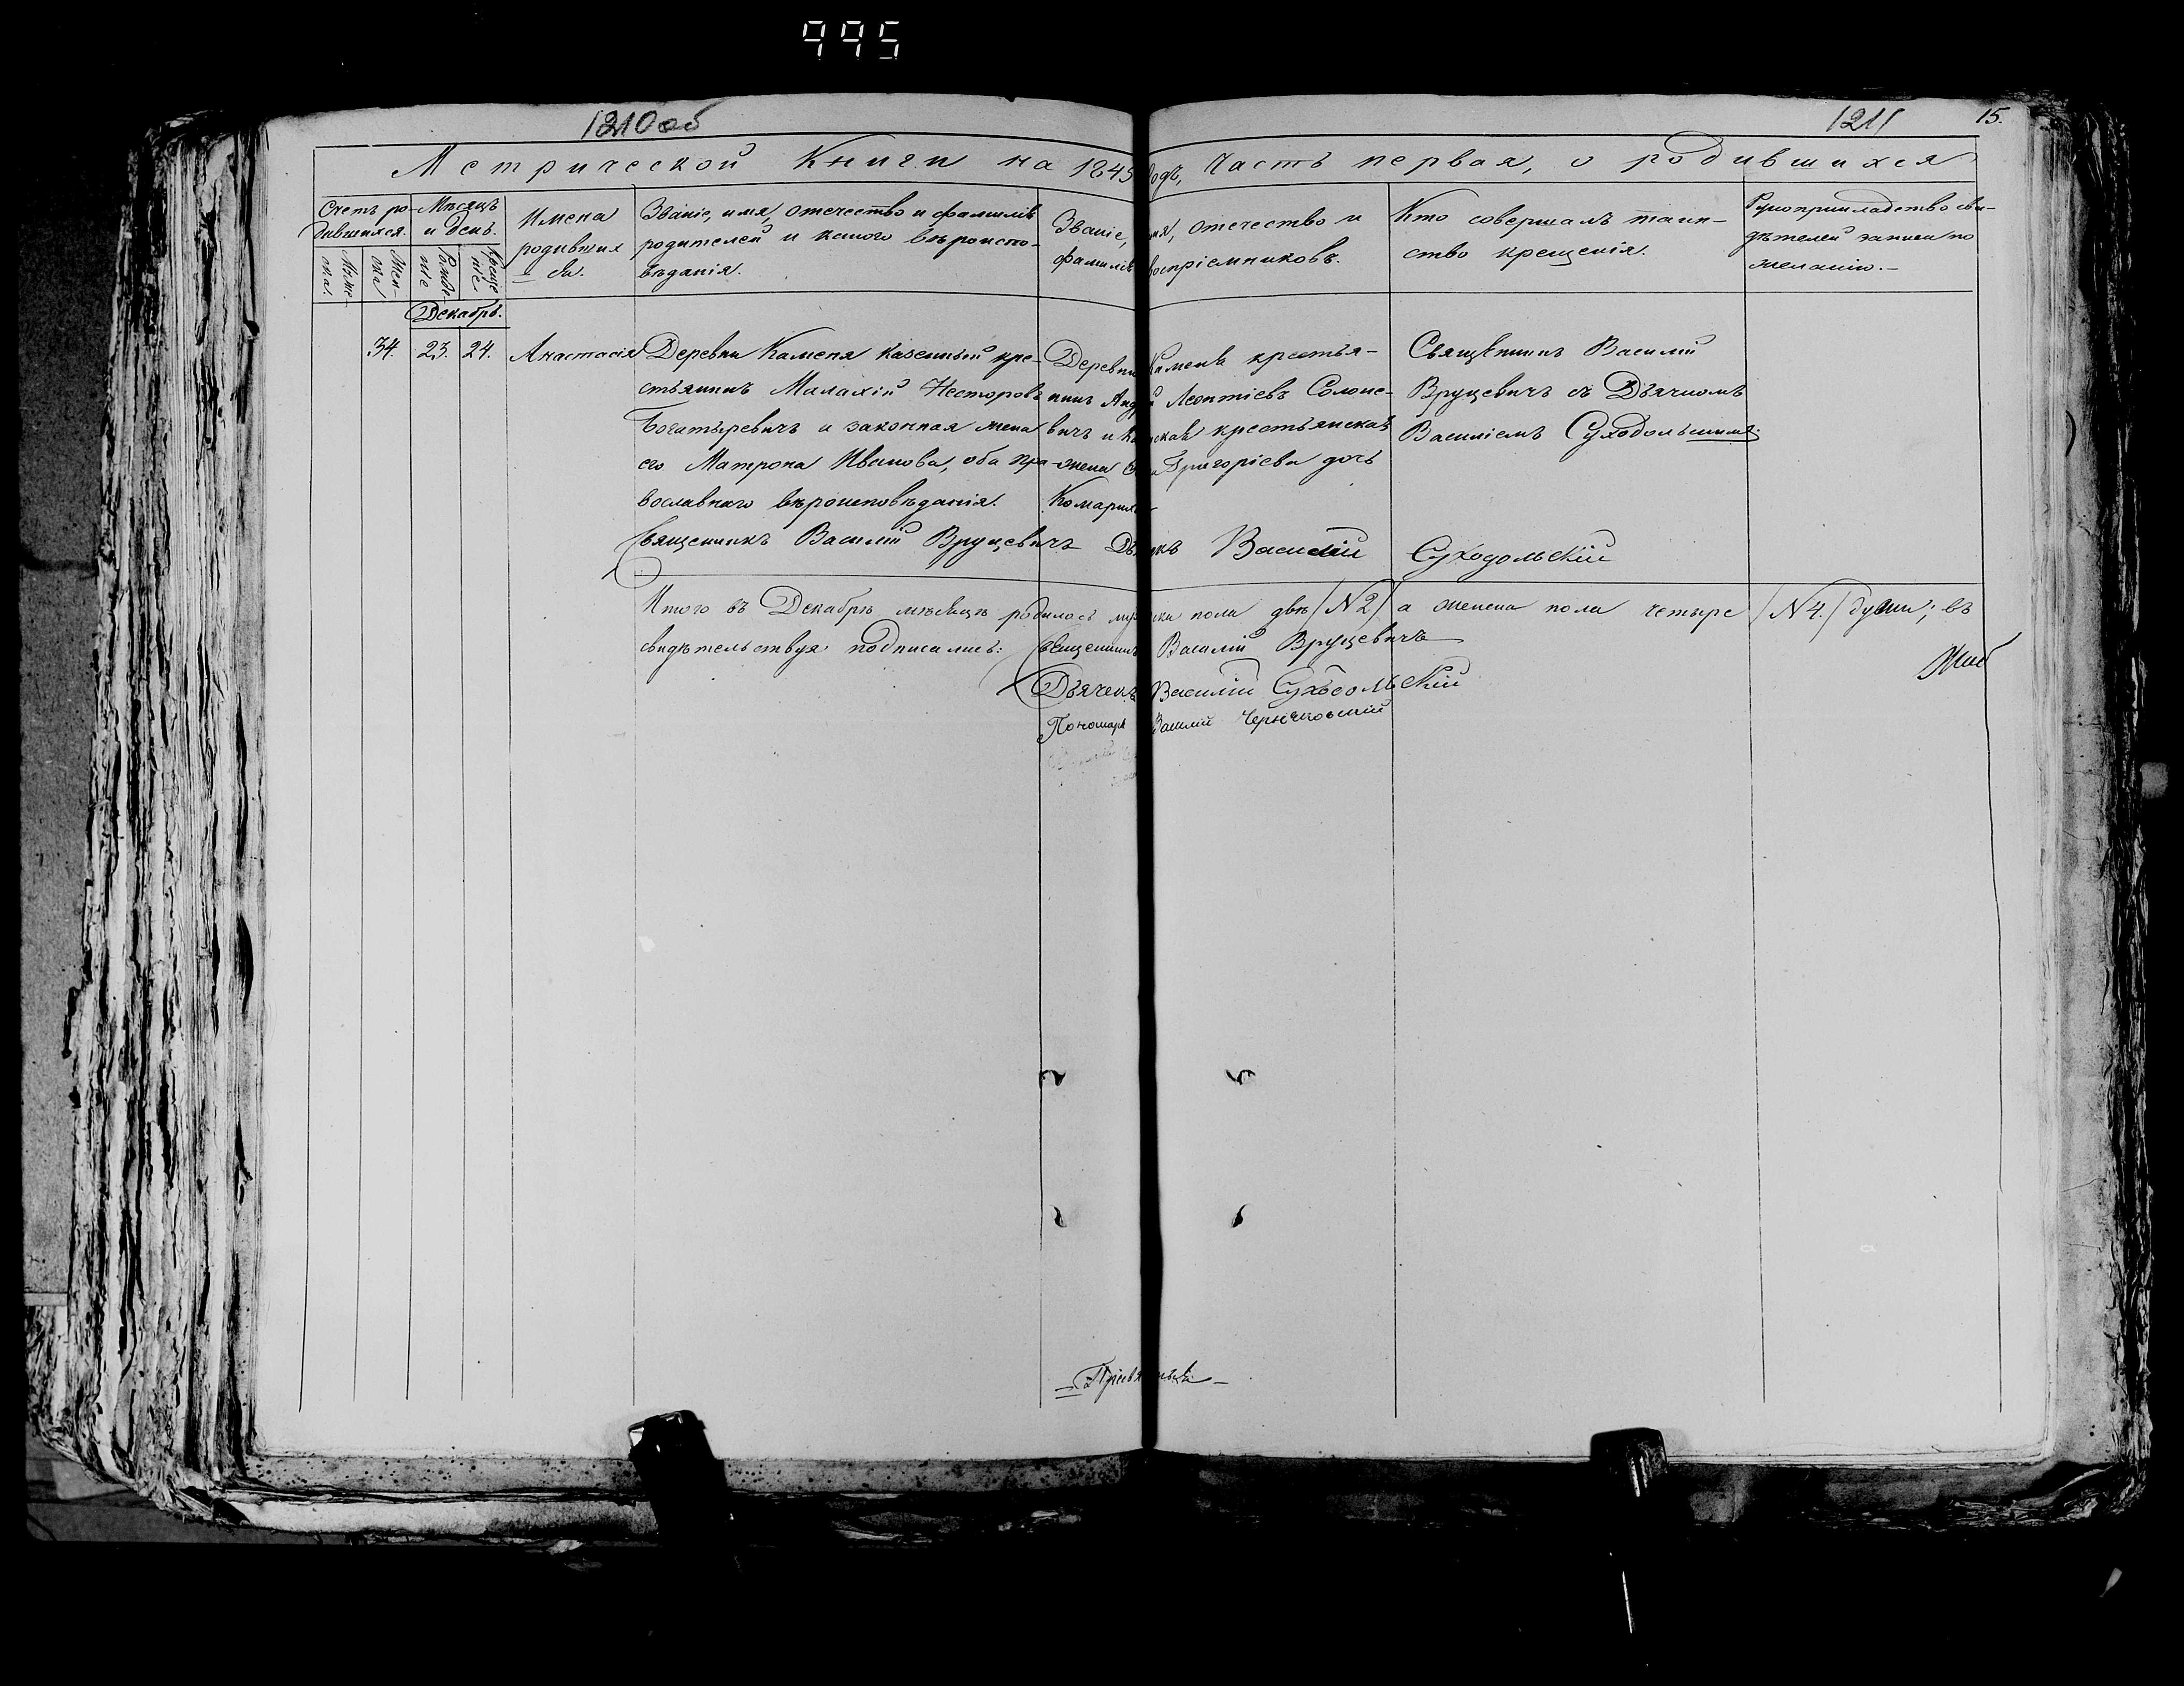 995
1210 об
1211
15.
Метрической Книги на 1845 годъ, Часть первая, о родившихся
Счетъ ро-
дившихся.
Мѣсяцъ
и день.
Имена
родивших
ся.
Званіе, имя, отечество и фамилія
родителей и какого вѣроиспо-
вѣданія.
Званіе, имя, отечество и
фамилія воспріемниковъ.
Кто совершалъ таин-
ство крещенія.
Рукоприкладство сви-
дѣтелей записи по
желанію.-
Муже-
ска.
Жен-
ска
Рожде-
ніе
Креще
ніе
Декабрь.
34. 23. 24. Анастасія
Деревни Каменя казенный кре-
стьянинъ Малахій Несторовъ
Богатыревичъ и законная жена
его Матрона Иванова, оба пра-
вославнаго вѣроисповѣданія.
Деревни Каменя крестья-
нинъ Андрей Леонтіевъ Солоне-
вичъ и крестьянская
жена Григоріева дочь
Священникъ Василій
Вруцевичъ съ Дьячкомъ
Василіемъ Суходольскимъ.
Священникъ Василій Вруцевичъ Дьячекъ Василій Суходольскій
Итого въ Декабрѣ мѣсяцѣ родилось мужеска пола двѣ /№ 2/ а женска пола четыре /№ 4./ души; въ
свидѣтельствуя подписались: Священникъ Василій Вруцевичъ
Дьячекъ Василій Суходольскій
Пономарь Василій Чернѣковскій